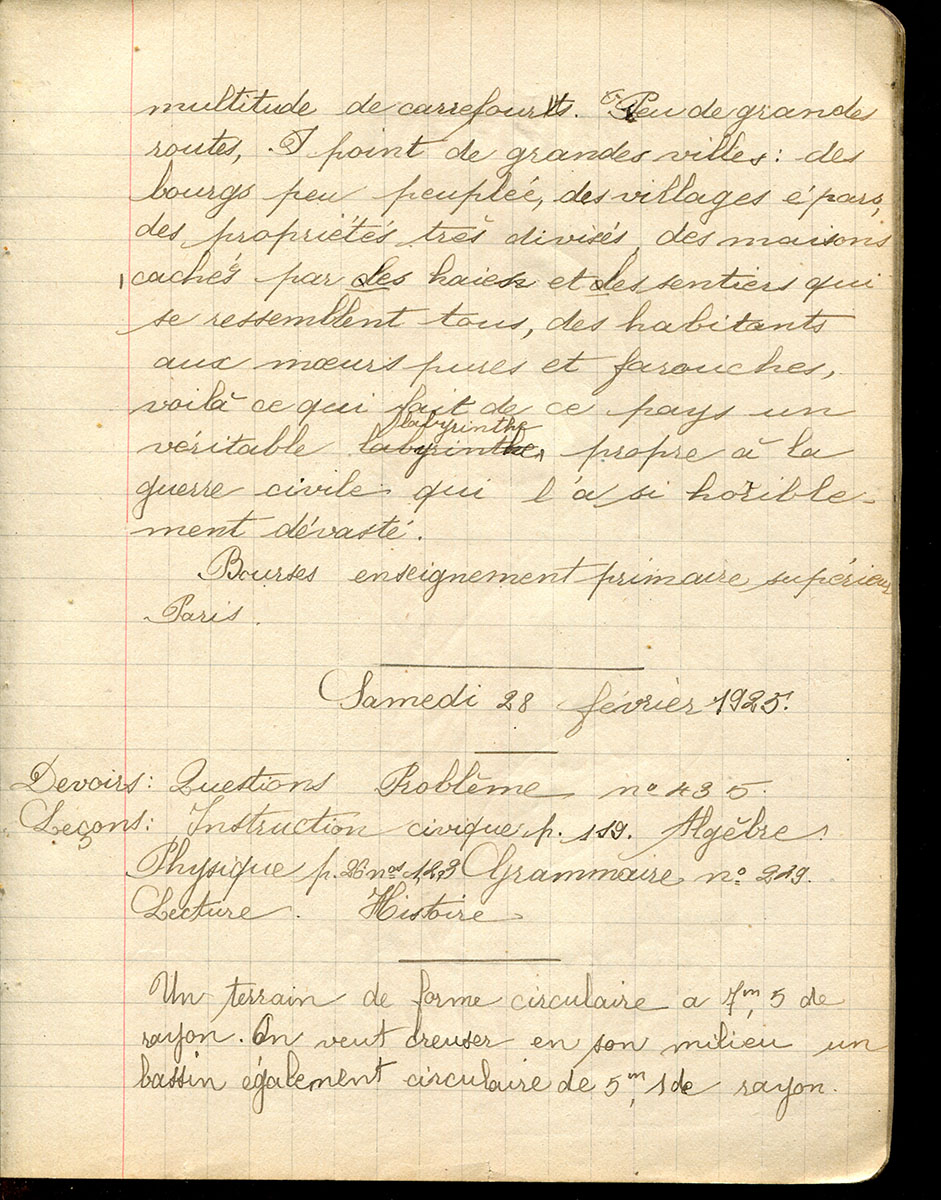 multitude de carrefours. Peu de grandes
routes, point de grandes villes : des
bourgs peu peuplée, des villages épars,
des propriétés très divisés, des maisons
cachés par des haies et des sentiers qui
se ressemblent tous, des habitants
aux mœurs pures et farouches,
voilà ce qui fait de ce pays un
labyrinthe
véritable labyrinthe, propre à la
guerre civile qui l'a si horible-
ment dévasté.
Bourses enseignement primaire supérieur
Paris.
Samedi 28 février 1925.
Devoirs : Questions Problème n° 435.
Leçons : Instruction civique p. 119. Algèbre.
Physique p. 26 nos 1,2,3 Grammaire n° 229.
Lecture. Histoire.
Un terrain de forme circulaire a 7m,5 de
rayon. On veut creuser en son milieu un
bassin également circulaire de 5m,1 de rayon.